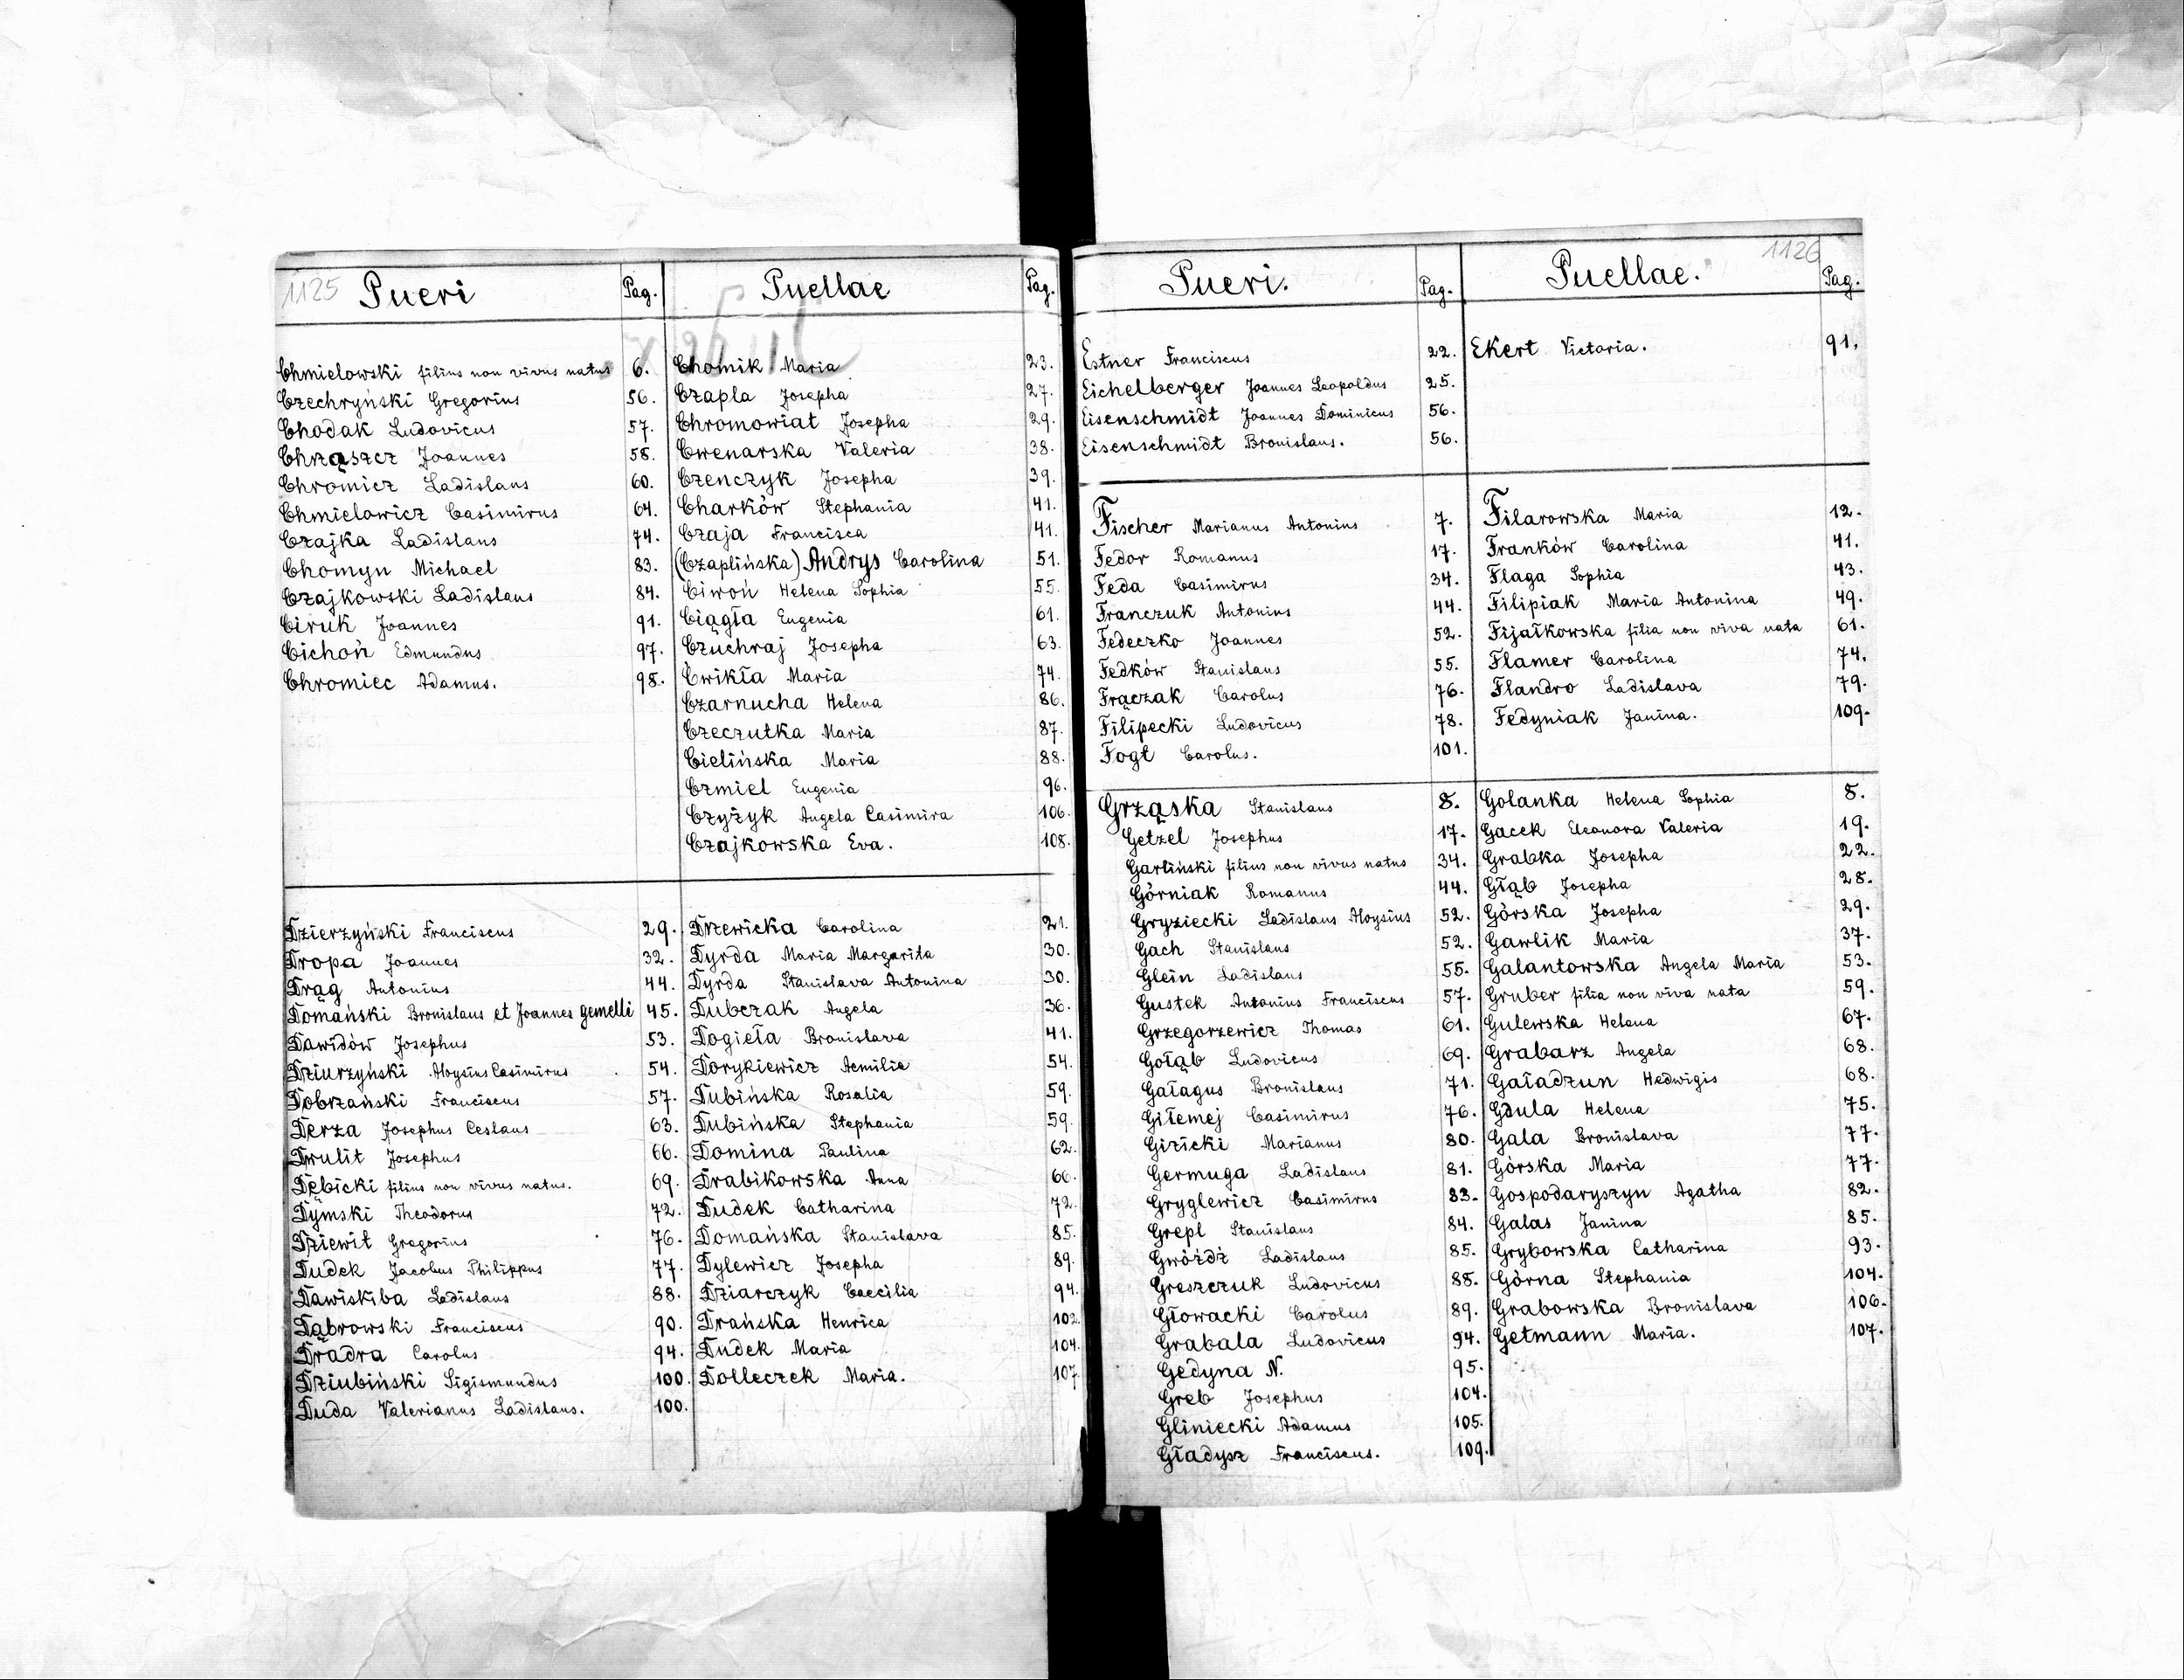 1125 Pueri Pag. Puellae Pag.
Chmielowski filius non vivus natus 6. Chomik Maria 23.
Czechryński Gregorius 56. Czapla Josepha 27.
Chodak Ludovicus 57. Chromowiat Josepha 29.
Chrząszcz Joannes 58. Cwenarska Valeria 38.
Chromicz Ladislaus 60. Czenczyk Josepha 39.
Chmielowicz Casimirus 64. Charków Stephania 41.
Czajka Ladislaus 74. Czaja Francisca 41.
Chomyn Michael 83. (Czaplińska) Andrys Carolina 51.
Czajkowski Ladislaus 84. Ciwoń Helena Sophia 55.
Ciruk Joannes 91. Ciągła Eugenia 61.
Cichoń Edmundus 97. Czuchraj Josepha 63.
Chromiec Adamus. 98. Ćwikła Maria 74.
Czarnucha Helena 86.
Czeczutka Maria 87.
Cielińska Maria 88.
Czmiel Eugenia 96.
Czyżyk Angela Casimira 106.
Czajkowska Eva. 108.
Dzierzyński Franciscus 29. Drzewicka Carolina 21.
Dropa Joannes 32. Dyrda Maria Margarita 30.
Drąg Antonius 44. Dyrda Stanislava Antonina 30.
Domański Bronislaus et Joannes gemelli 45. Dubczak Angela 36.
Dawidów Josephus 53. Dogieła Bronislava 41.
Dziurzyński Aloysius Casimirus 54. Dorykiewicz Aemilia 54.
Dobrzański Franciscus 57. Dubińska Rosalia 59.
Derza Josephus Ceslaus 63. Dubińska Stephania 59.
Drulit Josephus 66. Domina Paulina 62.
Dębicki filius non vivus natus. 69. Drabikowska Anna 66.
Dymski Theodorus 72. Dudek Catharina 72.
Dziewit Gregorius 76. Domańska Stanislava 85.
Dudek Jacobus Philippus 77. Dylewicz Josepha 89.
Dawiskiba Ladislaus 88. Dziarczyk Caecilia 94.
Dąbrowski Franciscus 90. Drańska Henrica 102.
Dradra Carolus 94. Dudek Maria 104.
Dziubiński Sigismundus 100. Dolleczek Maria. 107.
Duda Valerianus Ladislaus. 100.
Pueri. Pag. Puellae. 1126 Pag.
Estner Franciscus 22. Ekert Victoria. 91.
Eichelberger Joannes Leopoldus 25.
Eisenschmidt Joannes Dominicus 56.
Eisenschmidt Bronislaus. 56.
Fischer Marianus Antonius 7. Filarowska Maria 12.
Fedor Romanus 17. Franków Carolina 41.
Feda Casimirus 34. Flaga Sophia 43.
Franczuk Antonius 44. Filipiak Maria Antonina 49.
Fedeczko Joannes 52. Fijałkowska filia non viva nata 61.
Fedków Stanislaus 55. Flamer Carolina 74.
Frączak Carolus 76. Flandro Ladislava 79.
Filipecki Ludovicus 78. Fedyniak Janina. 109.
Fogt Carolus. 101.
Grząska Stanislaus 8. Golanka Helena Sophia 8.
Getzel Josephus 17. Gacek Eleonora Valeria 19.
Garliński filius non vivus natus 34. Grabka Josepha 22.
Górniak Romanus 44. Głąb Josepha 28.
Gryziecki Ladislaus Aloysius 52. Górska Josepha 29.
Gach Stanislaus 52. Gawlik Maria 37.
Glein Ladislaus 55. Galantowska Angela Maria 53.
Gustek Antonius Franciscus 57. Gruber filia non viva nata 59.
Grzegorzewicz Thomas 61. Gulewska Helena 67.
Gołąb Ludovicus 69. Grabarz Angela 68.
Gałagus Bronislaus 71. Gaładzun Hedwigis 68.
Giłemej Casimirus 76. Gdula Helena 75.
Giżicki Marianus 80. Gala Bronislava 77.
Germuga Ladislaus 81. Górska Maria 77.
Gryglewicz Casimirus 83. Gospodaryszyn Agatha 82.
Grepl Stanislaus 84. Galas Janina 85.
Gwóźdź Ladislaus 85. Grybowska Catharina 93.
Greszczuk Ludovicus 88. Górna Stephania 104.
Głowacki Carolus 89. Grabowska Bronislava 106.
Grabala Ludovicus 94. Getmann Maria. 107.
Gedyna N. 95.
Greb Josephus 104.
Gliniecki Adamus 105.
Gładysz Franciscus. 109.